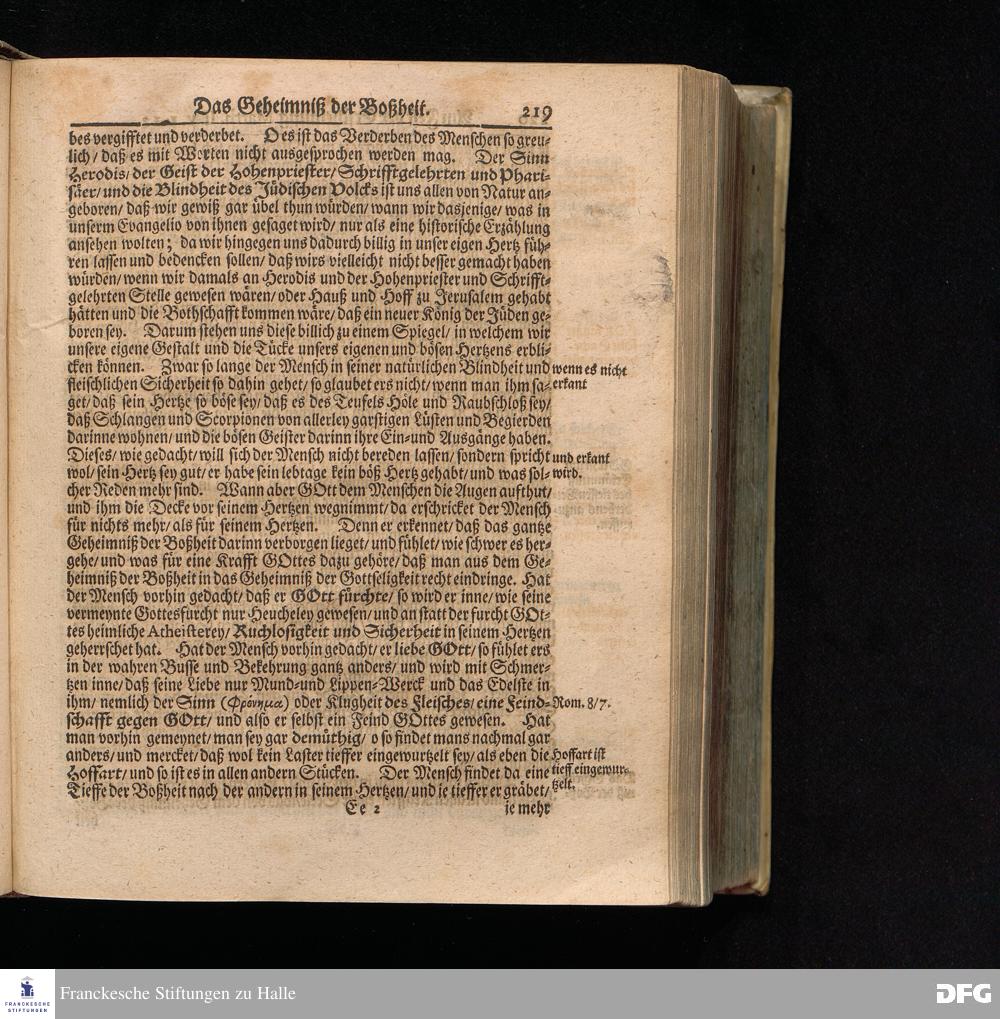 Das Geheimniß der Boßheit. 219
bes vergifftet und verderbet. O es ist das Verderben des Menschen so greu-
lich/ daß es mit Worten nicht ausgesprochen werden mag. Der Sinn
Herodis/ der Geist der Hohenpriester/ Schrifftgelehrten und Phari-
säer/ und die Blindheit des Jüdischen Volcks ist uns allen von Natur an-
geboren/ daß wir gewiß gar übel thun würden/ wann wir dasjenige/ was in
unserm Evangelio von ihnen gesaget wird/ nur als eine historische Erzählung
ansehen wolten; da wir hingegen uns dadurch billig in unser eigen Hertz füh-
ren lassen und bedencken sollen/ daß wirs vielleicht nicht besser gemacht haben
würden/ wenn wir damals an Herodis und der Hohenpriester und Schrifft-
gelehrten Stelle gewesen wären/ oder Hauß und Hoff zu Jerusalem gehabt
hätten und die Bothschafft kommen wäre/ daß ein neuer König der Jüden ge-
boren sey. Darum stehen uns diese billich zu einem Spiegel/ in welchem wir
unsere eigene Gestalt und die Tücke unsers eigenen und bösen Hertzens erbli-
cken können. Zwar so lange der Mensch in seiner natürlichen Blindheit und
wenn es nicht
fleischlichen Sicherheit so dahin gehet/ so glaubet ers nicht/ wenn man ihm sa-
erkant
get/ daß sein Hertze so böse sey/ daß es des Teufels Höle und Raubschloß sey/
daß Schlangen und Scorpionen von allerley garstigen Lüsten und Begierden
darinne wohnen/ und die bösen Geister darinn ihre Ein- und Ausgänge haben.
Dieses/ wie gedacht/ will sich der Mensch nicht bereden lassen/ sondern spricht
und erkant
wol/ sein Hertz sey gut/ er habe sein lebtage kein böß Hertz gehabt/ und was sol-
wird.
cher Reden mehr sind. Wann aber GOtt dem Menschen die Augen aufthut/
und ihm die Decke vor seinem Hertzen wegnimmt/ da erschricket der Mensch
für nichts mehr/ als für seinem Hertzen. Denn er erkennet/ daß das gantze
Geheimniß der Boßheit darinn verborgen lieget/ und fühlet/ wie schwer es her-
gehe/ und was für eine Krafft GOttes dazu gehöre/ daß man aus dem Ge-
heimniß der Boßheit in das Geheimniß der Gottseligkeit recht eindringe. Hat
der Mensch vorhin gedacht/ daß er GOtt fürchte/ so wird er inne/ wie seine
vermeynte Gottesfurcht nur Heucheley gewesen/ und an statt der furcht GOt-
tes heimliche Atheisterey/ Ruchlosigkeit und Sicherheit in seinem Hertzen
geherrschet hat. Hat der Mensch vorhin gedacht/ er liebe GOtt/ so fühlet ers
in der wahren Busse und Bekehrung gantz anders/ und wird mit Schmer-
tzen inne/ daß seine Liebe nur Mund- und Lippen-Werck und das Edelste in
ihm/ nemlich der Sinn (Φρόνημα) oder Klugheit des Fleisches/ eine Feind-
Rom. 8/7.
schafft gegen GOtt/ und also er selbst ein Feind GOttes gewesen. Hat
man vorhin gemeynet/ man sey gar demüthig/ o so findet mans nachmal gar
anders/ und mercket/ daß wol kein Laster tieffer eingewurtzelt sey/ als eben die
Hoffart ist
Hoffart/ und so ist es in allen andern Stücken. Der Mensch findet da eine
tieff eingewur-
Tieffe der Boßheit nach der andern in seinem Hertzen/ und ie tieffer er gräbet/
tzelt.
Ee 2 ie mehr
FRANCKESCHE
STIFTUNGEN
Franckesche Stiftungen zu Halle
DFG